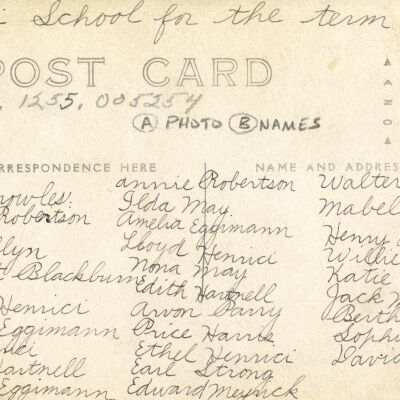 School for the term
POST CARD
1255.005254
Ⓐ PHOTO Ⓑ NAMES
RRESPONDENCE HERE
NAME AND ADDRES
AZO
nowles.
Robertson
lyn
Blackburn
Henrici
Eggimann
artnell
Eggimann
Annie Robertson
Ilda May
Amelia Eggimann
Lloyd Henrici
Nona May
Edith Hartnell
Arvon Parry
Price Harris
Ethel Henrici
Earl Strong
Edward Meyrick
Walter
Mabel
Henry
Willie
Katie
Jack
Berth
Sophi
David